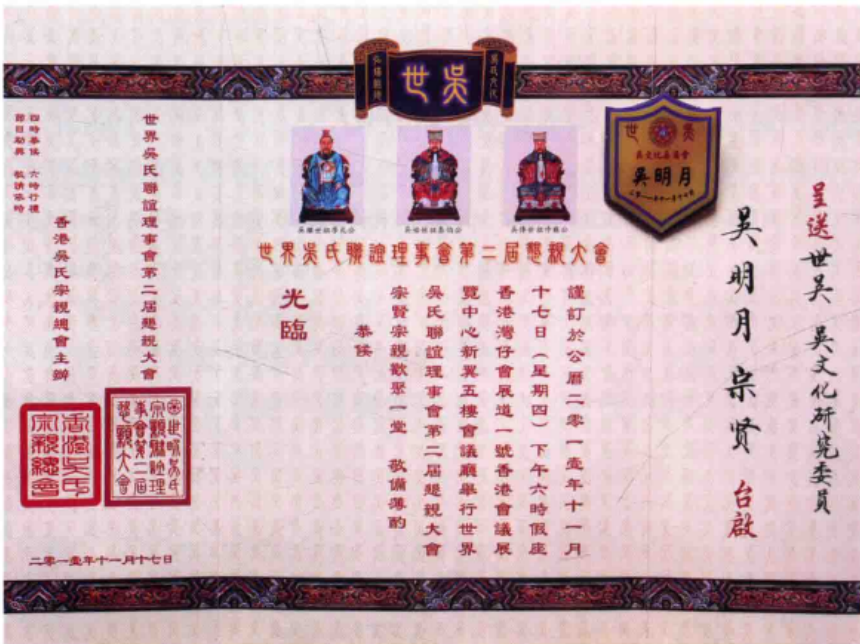 世吳
世 吳
吳文化委員會
吳明月
世界吳氏聯誼理事會第二屆懇親大會
呈送 世吳 吳文化研究委員
吳明月宗賢 台啟
謹訂於公曆二零一壹年十一月
十七日（星期四）下午六時假座
香港灣仔會展道一號香港會議展
覽中心新翼五樓會議廳舉行世界
吳氏聯誼理事會第二屆懇親大會
宗賢宗親歡聚一堂 敬備薄酌
恭候
光臨
世界吳氏聯誼理事會第二屆懇親大會
香港吳氏宗親總會主辦
四時恭候 六時行禮
節目助興 敬請依時
香港吳氏
宗親總會
二零一壹年十一月十七日